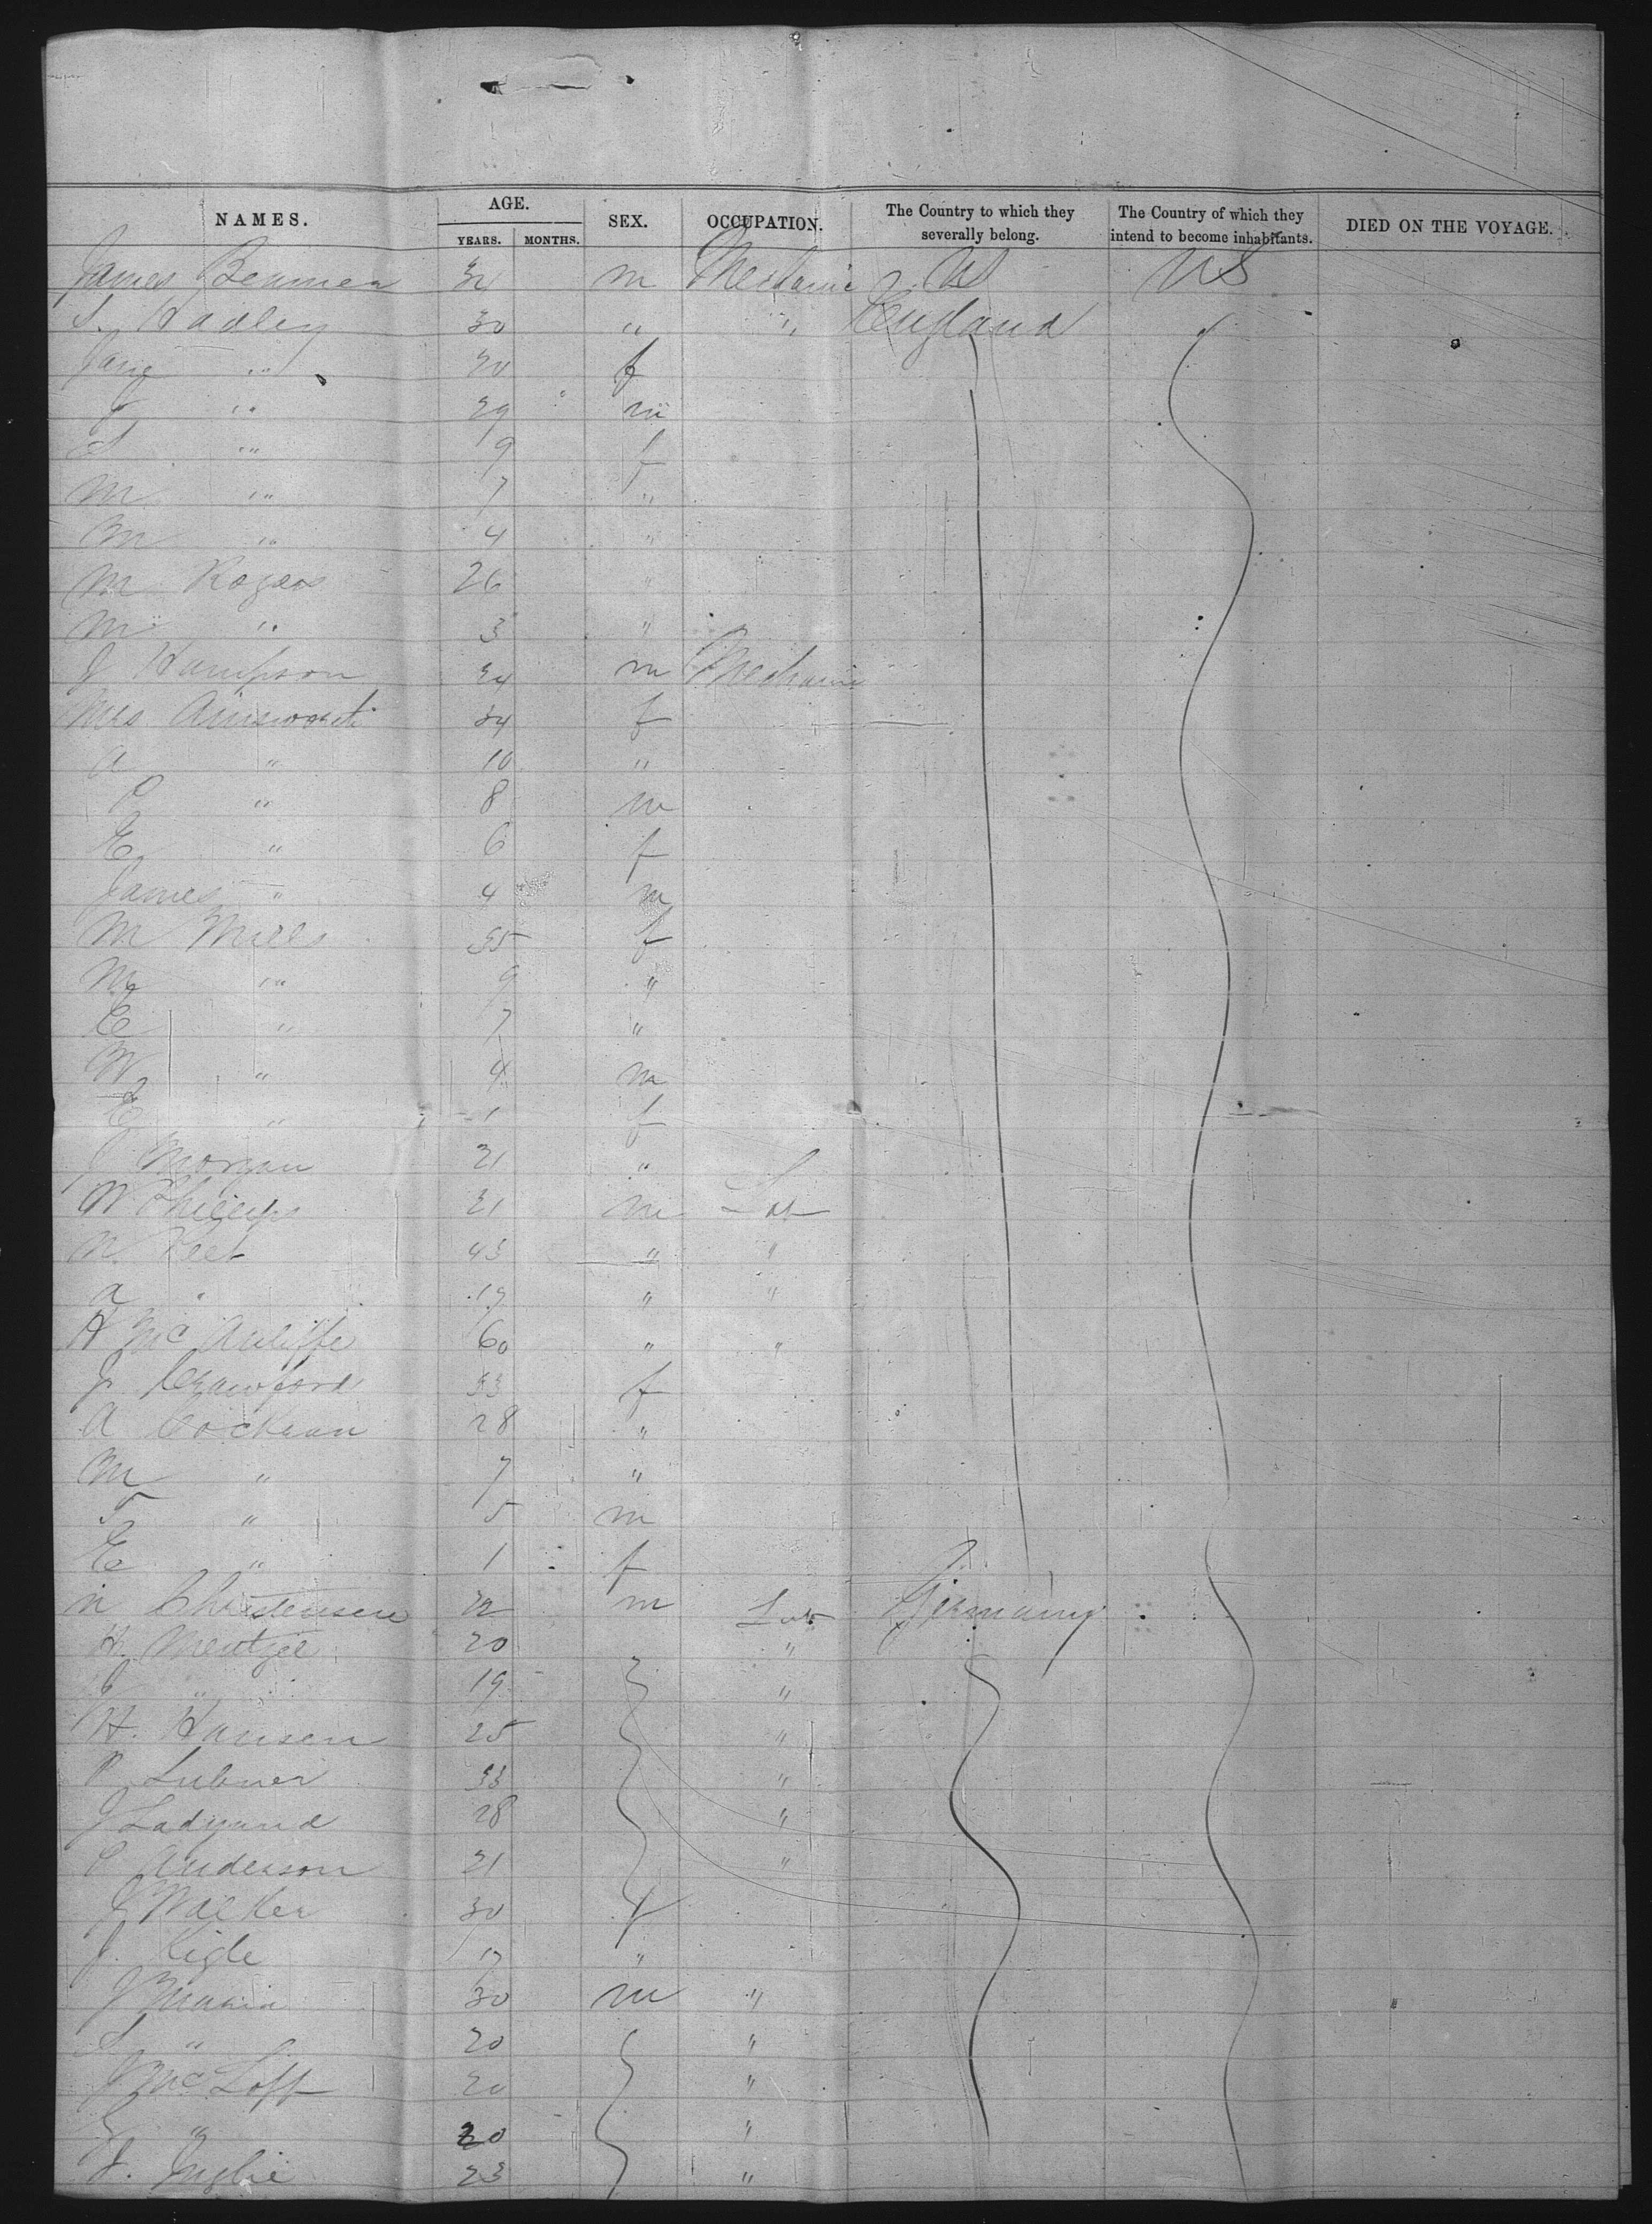 NAMES. AGE. YEARS. MONTHS. SEX. OCCUPATION. The Country to which they severally belong. The Country of which they intend to become inhabitants. DIED ON THE VOYAGE.
James m Mechanic US US
S. Hadley 30 " " England
Jane " f
J " 29 m
S " 9 f
M " 7 "
M " 4 "
M Rogers 26 "
M " 3 "
J Hampson 34 m Mechanic
Mrs Ainsworth 34 f
A " 10 "
P " 8 m
E " 6 f
James " 4 m
M Mills 35 f
M " 9 "
E " 7 "
W " 4 m
E " 1 f
J Morgan 21 "
W Phillips 21 m Lab
43 " "
a " 17 " "
H McAuliffe 60 " "
J. Crawford 33 f
A Cochran 28 "
M " 7 "
T " 5 m
E " 1 f
N Christensen 22 m Lab Germany
H. Mentzel 20 "
J " 19 "
H. Hansen 25 "
P Lubner 33 "
J 28 "
P Anderson 21 "
J Walker 30 f
J. 17 "
J 30 m "
S " 20 "
J McLoff 20 "
" 20 "
J. 23 "